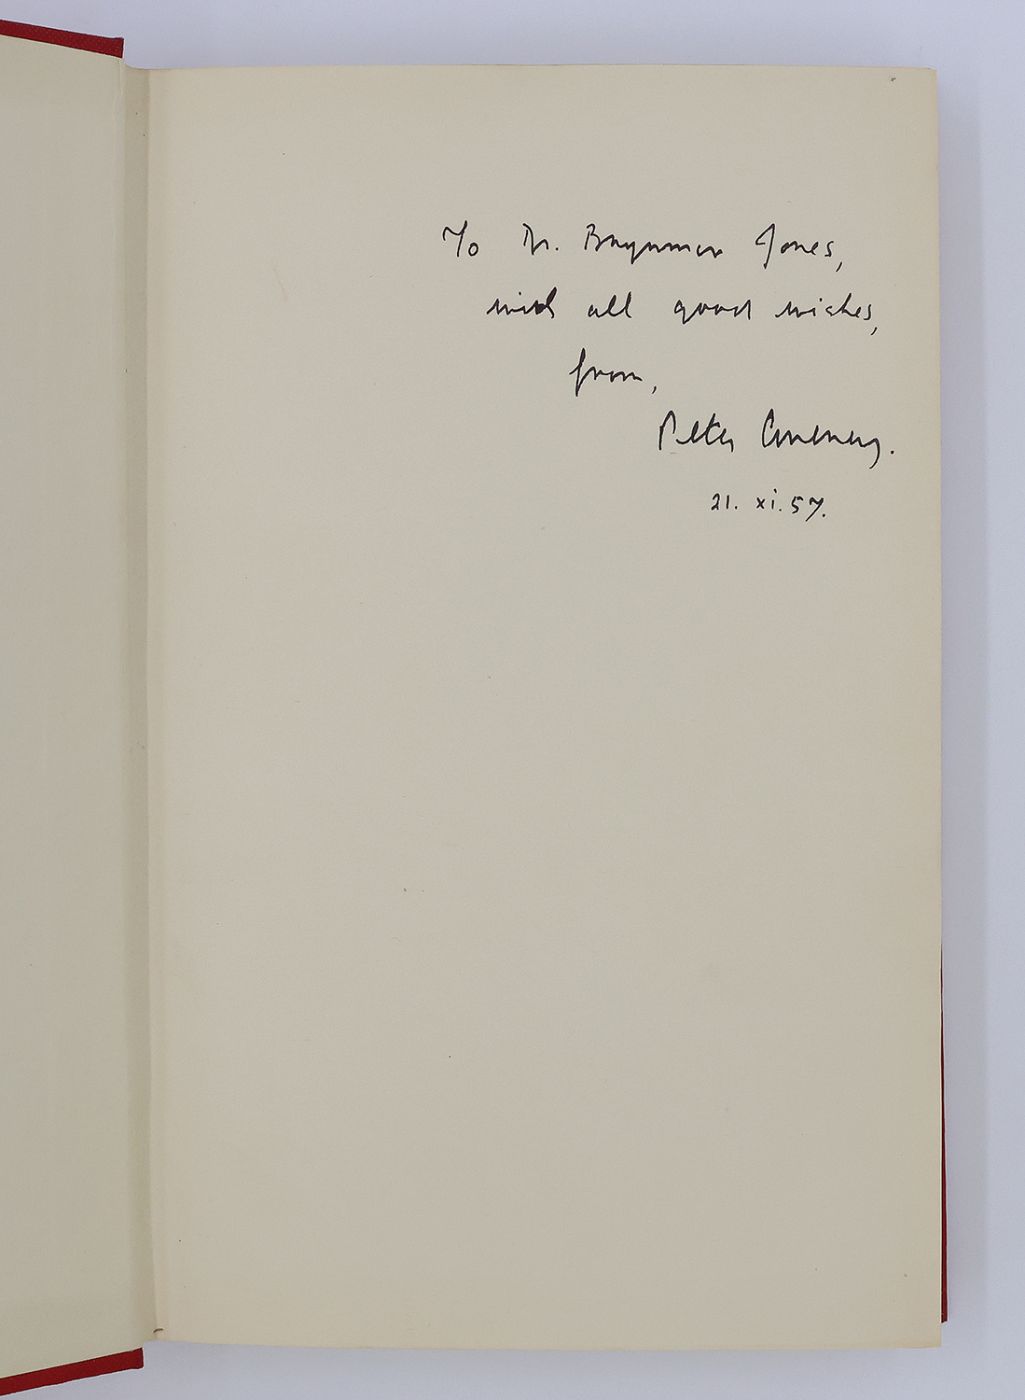 To Dr. Brynmor Jones,
with all good wishes,
from,
Peter Coveney.
21. xi. 57.